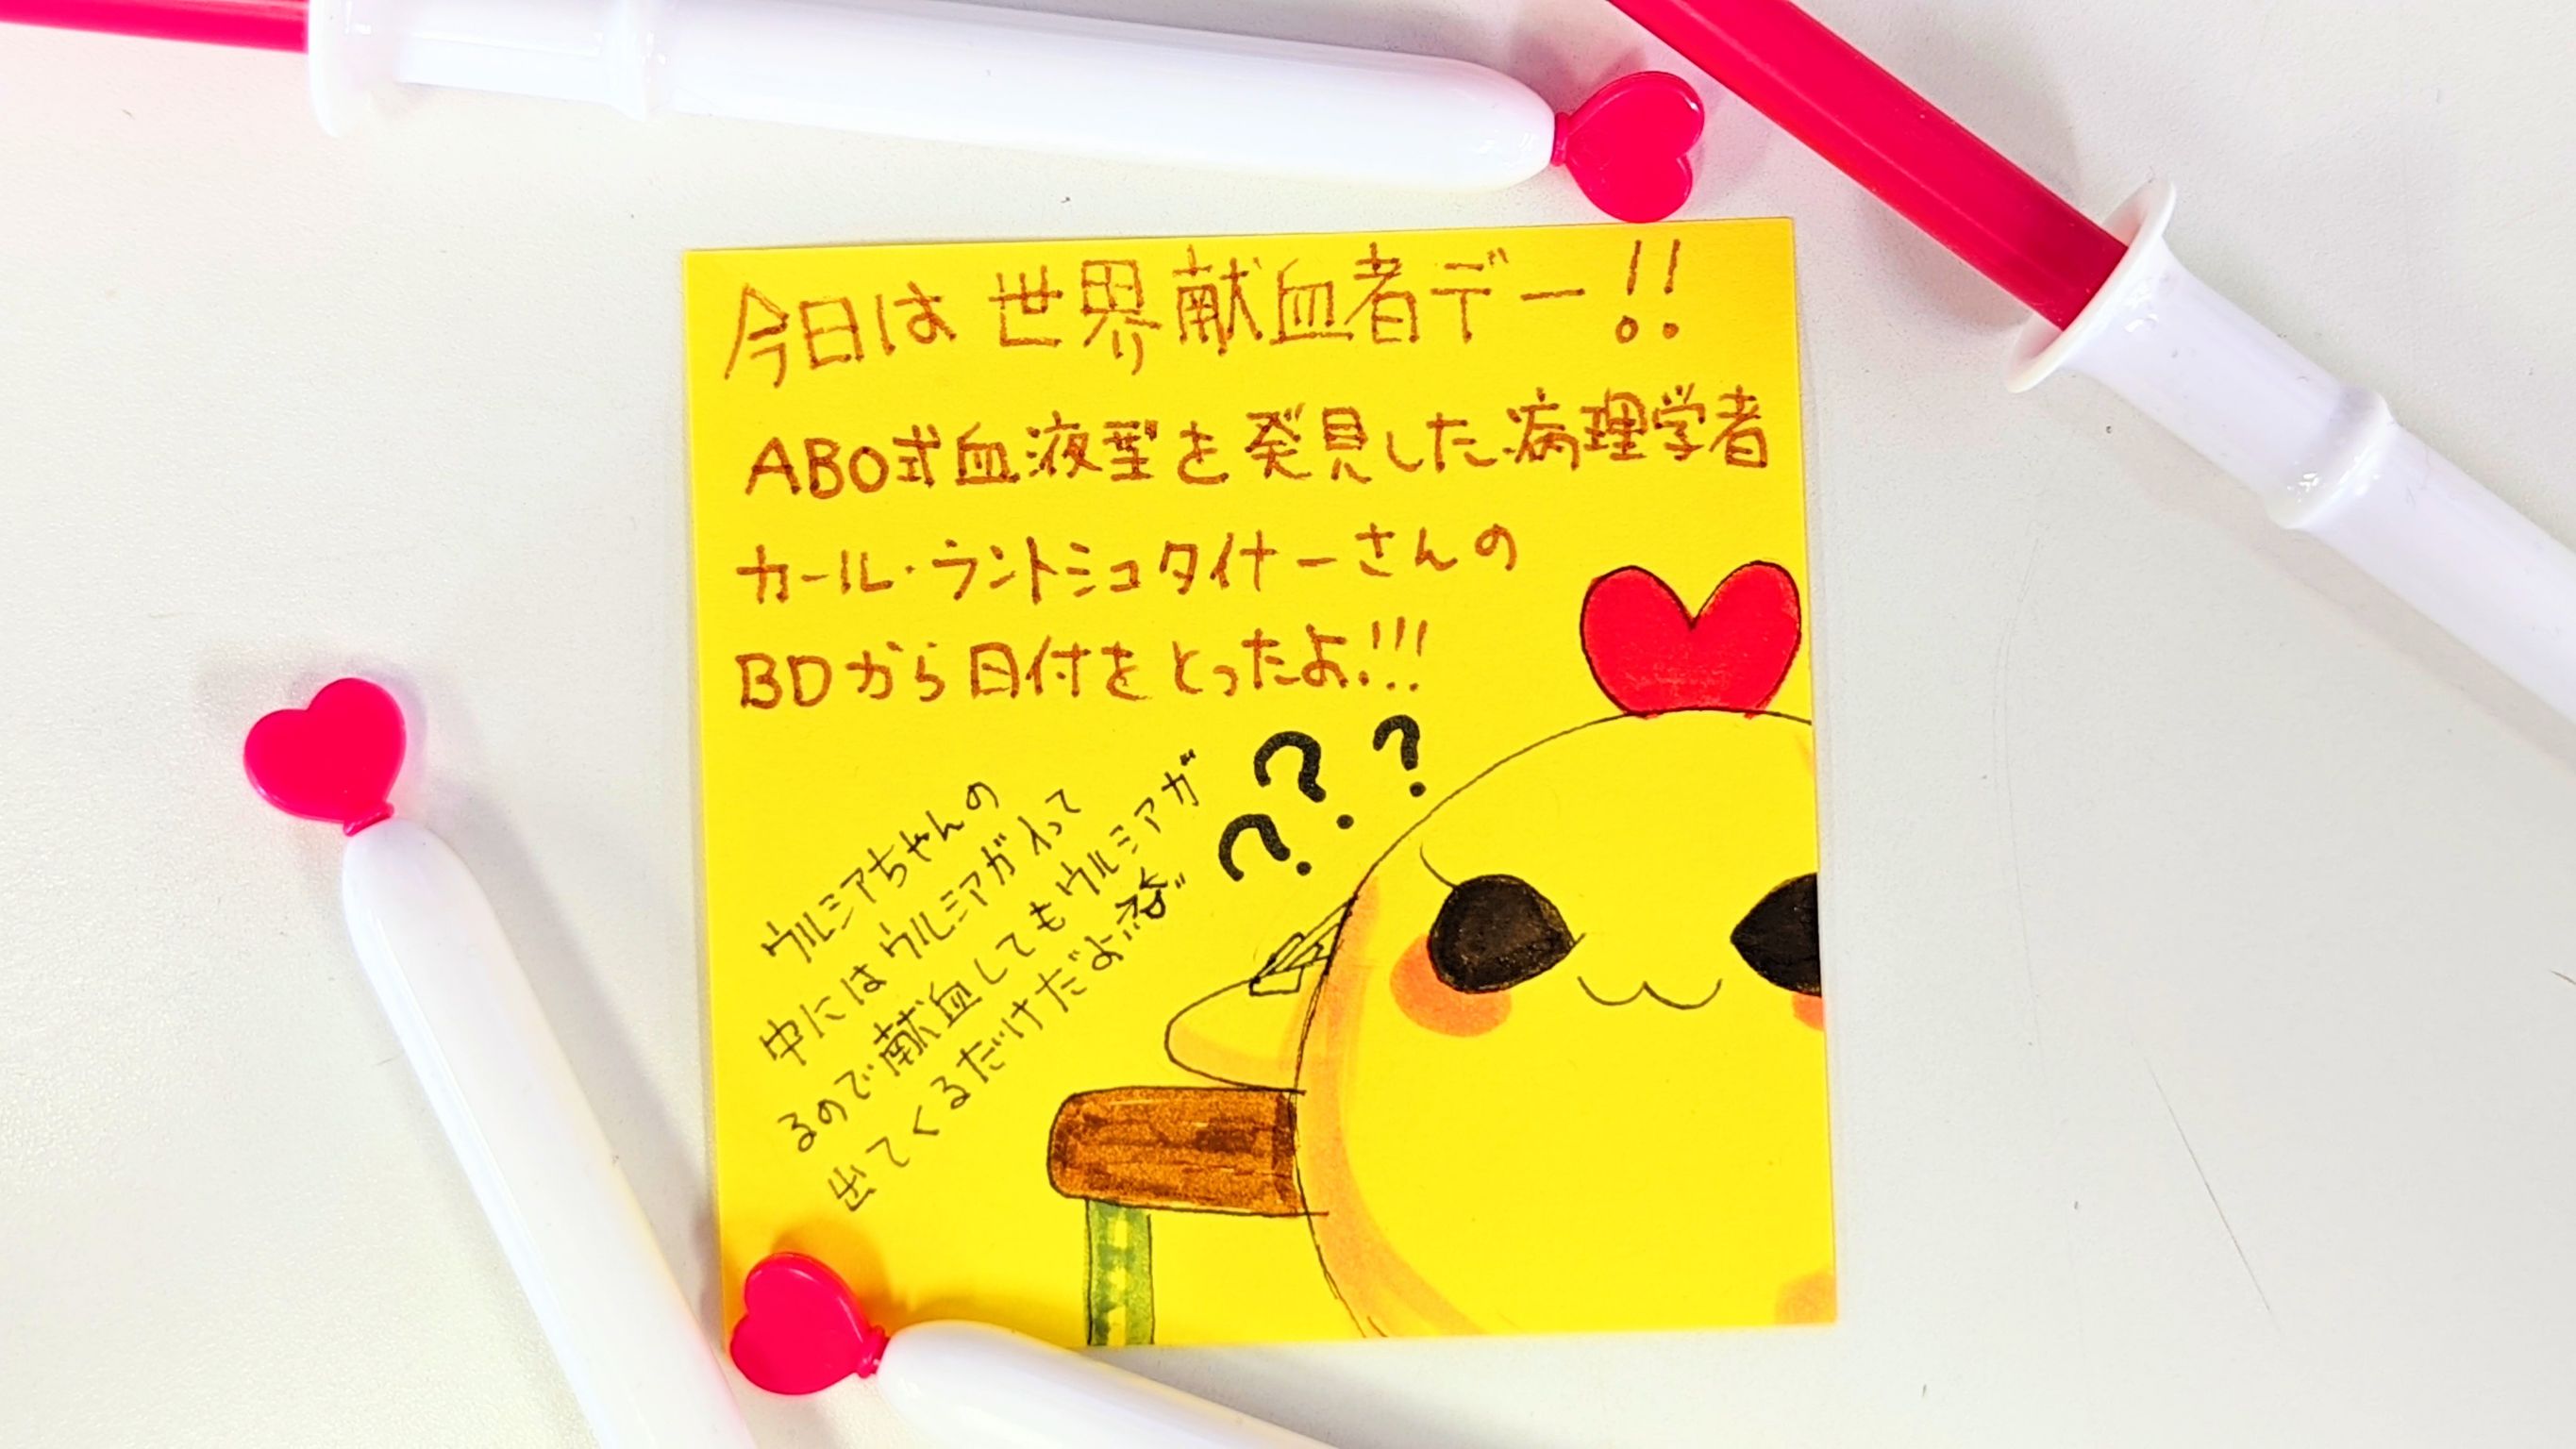 今日は世界献血者デー!!
ABO式血液型を発見した病理学者
カール・ラントシュタイナーさんの
BDから日付をとったよ!!!
???
ウルミアちゃんの
中にはウルミアガ入って
るので献血してもウルミアガ
出てくるだけだよ